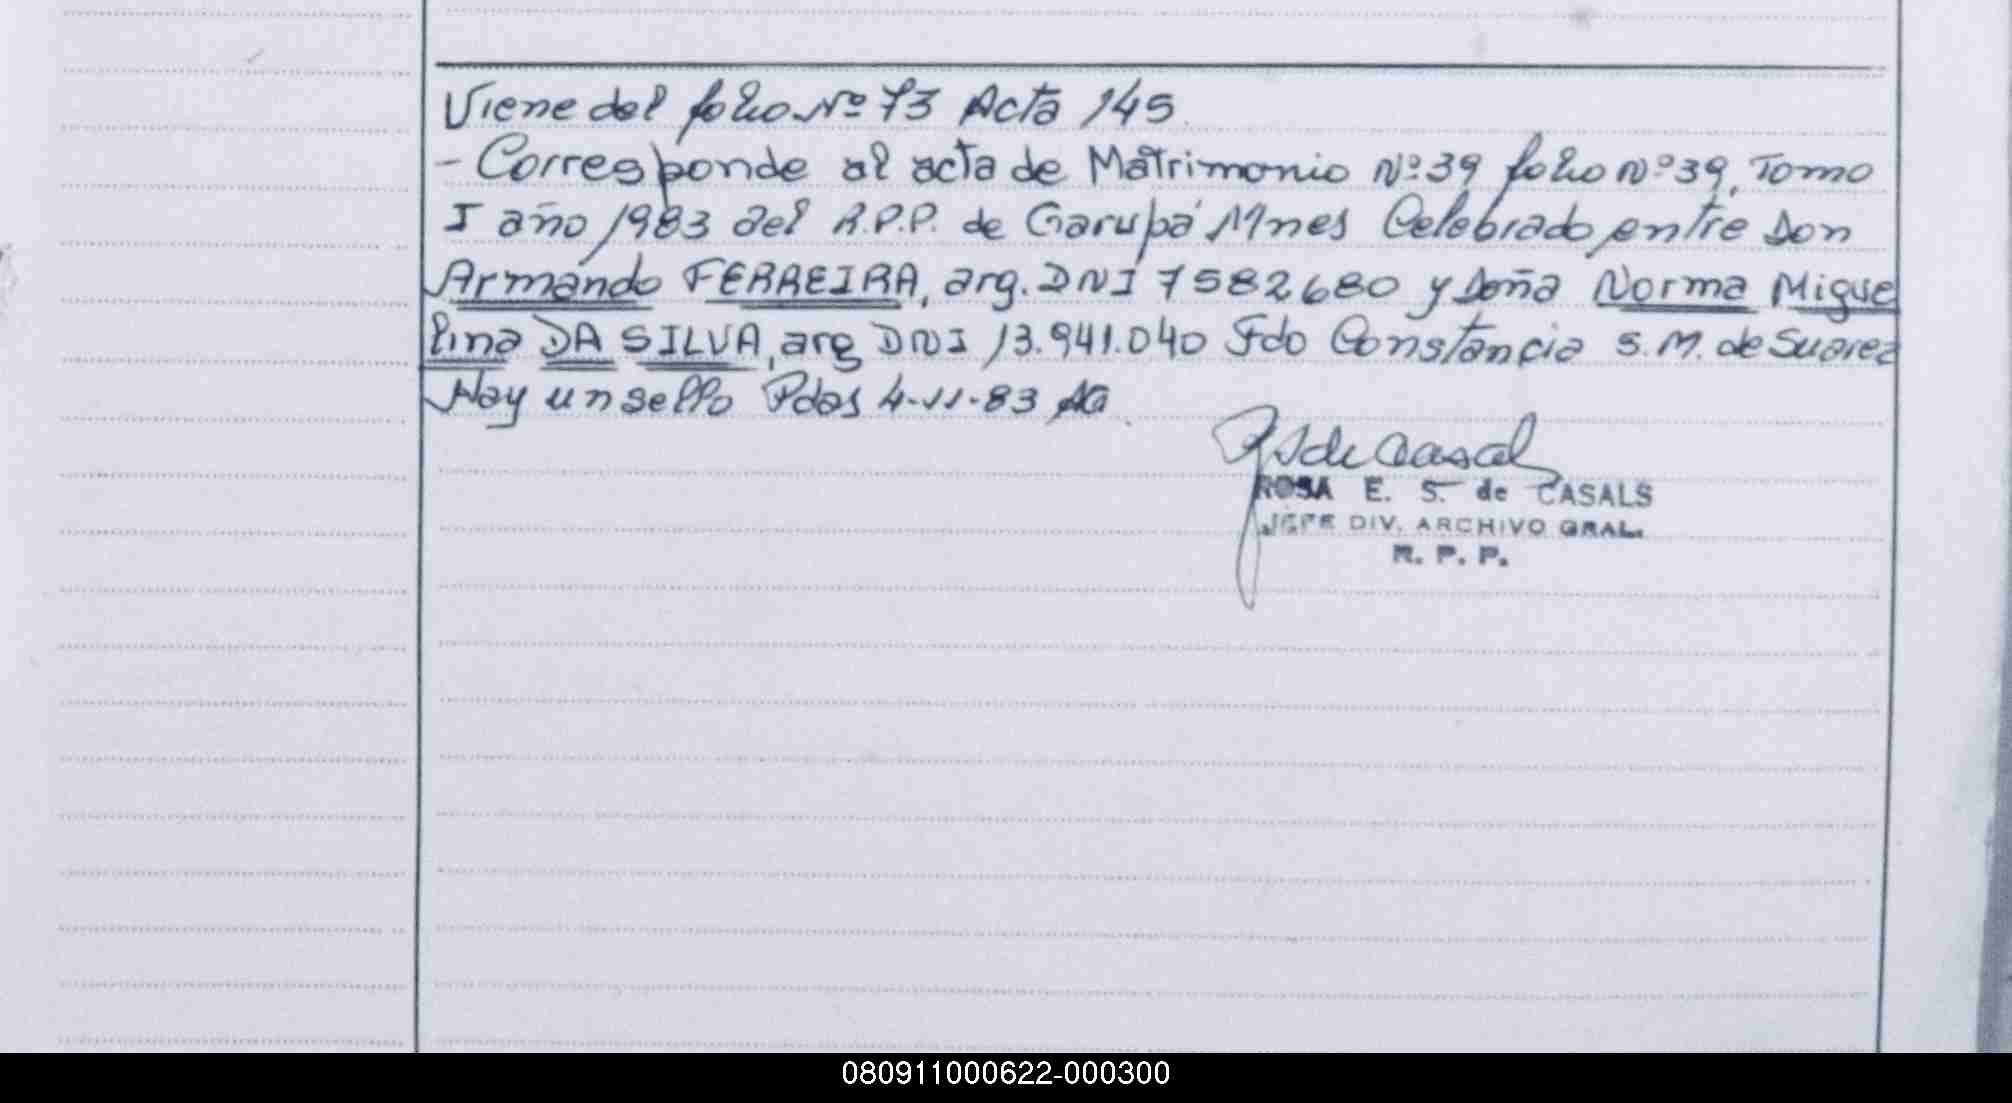 Viene del folio Nº 73 Acta 145
- Corresponde al acta de Matrimonio Nº 39 folio Nº 39, Tomo
I año 1983 del R.P.P. de Garupá Mnes Celebrado entre Don
Armando FERREIRA, arg. DNI 7582680 y Doña Norma Migue
lina DA SILVA, arg DNI 13.941.040 Fdo Constancia S.M. de Suarez
Hay un sello Pdas 4-11-83 AG
RSde Casals
ROSA E. S. de CASALS
JEFE DIV. ARCHIVO GRAL.
R. P. P.
080911000622-000300